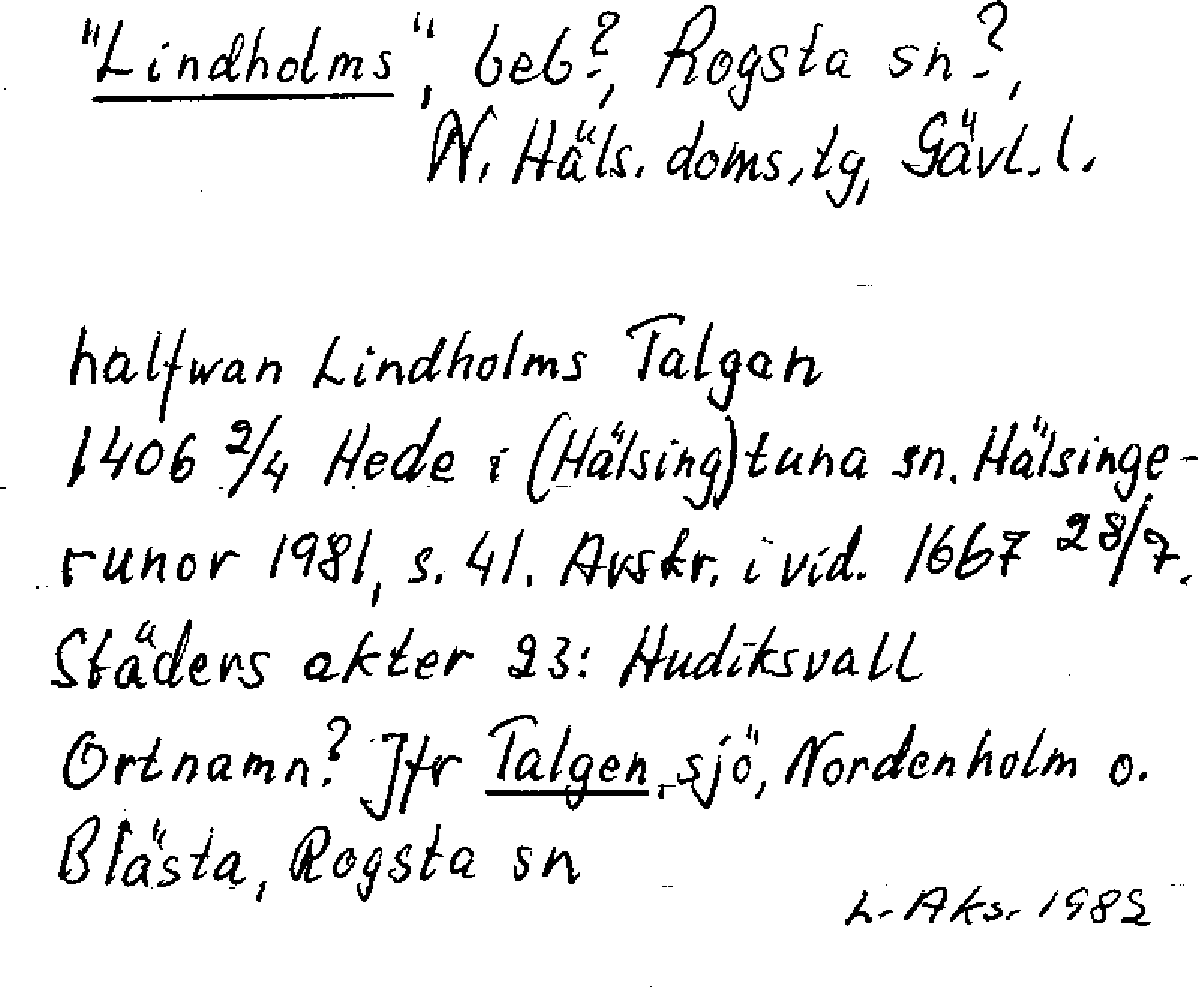 "Lindholms", beb?, Rogsta sn?,
N. Häls. doms. tg, Gävl. l.
halfwan Lindholms Talgen
1406 2/4 Hede i (Hälsing)tuna sn. Hälsinge-
runor 1981, s. 41. Avskr. i vid. 1667 28/7.
Städers akter 23: Hudiksvall
Ortnamn? Jfr Talgen, sjö, Nordenholm o.
Blästa, Rogsta sn
L. Aks. 1982